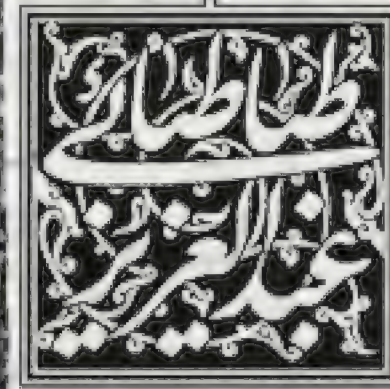 عبد العزيز
طباطبائى